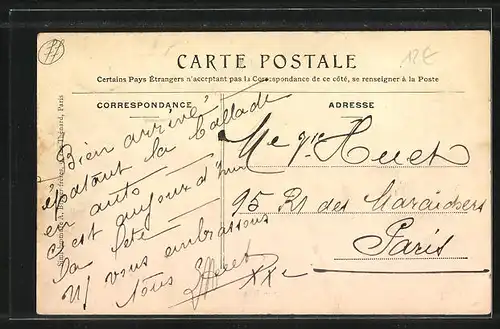 12€
CARTE POSTALE
Certains Pays Étrangers n'acceptant pas la Correspondance de ce côté, se renseigner à la Poste
CORRESPONDANCE
ADRESSE
Bien arrivé
épatant la ballade
en auto
c'est aujourd'hui
sa fête
N/ vous embrassons
tous Huet
Huet
95 R des Maraichers
Paris
Paris